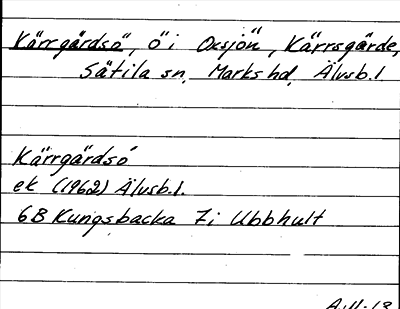 Kärrgärdsö, ö i Oxsjön, Kärrsgärde,
Sätila sn, Marks hd, Älvsb.l.
Kärrgärdsö
ek (1962) Älvsb.l.
6B Kungsbacka 7i Ubbhult